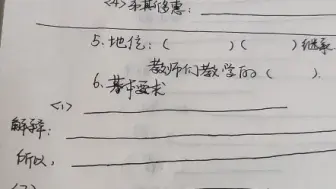 <4>采其结惠:
5. 地位:( )( )继承
教师们教学的( ).
6. 基本要求
<1>
解释:
所以,
<2>